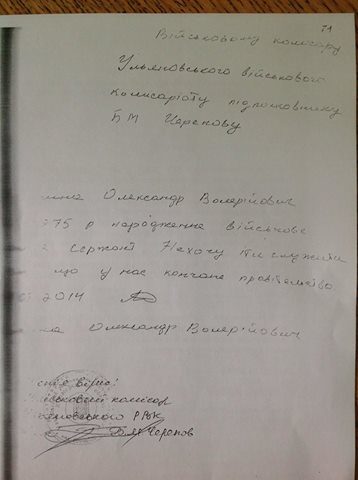 71
Військовому комісару
Ульяновського військового
комісаріоту підполковнику
Б М Черепову
Олександр Валерійович
75 р народження військове
сержант Нехочу іти служити
що у нас кончане правітельство
2014
Олександр Валерійович
вірна:
комісар
РВК
Б.М Черепов